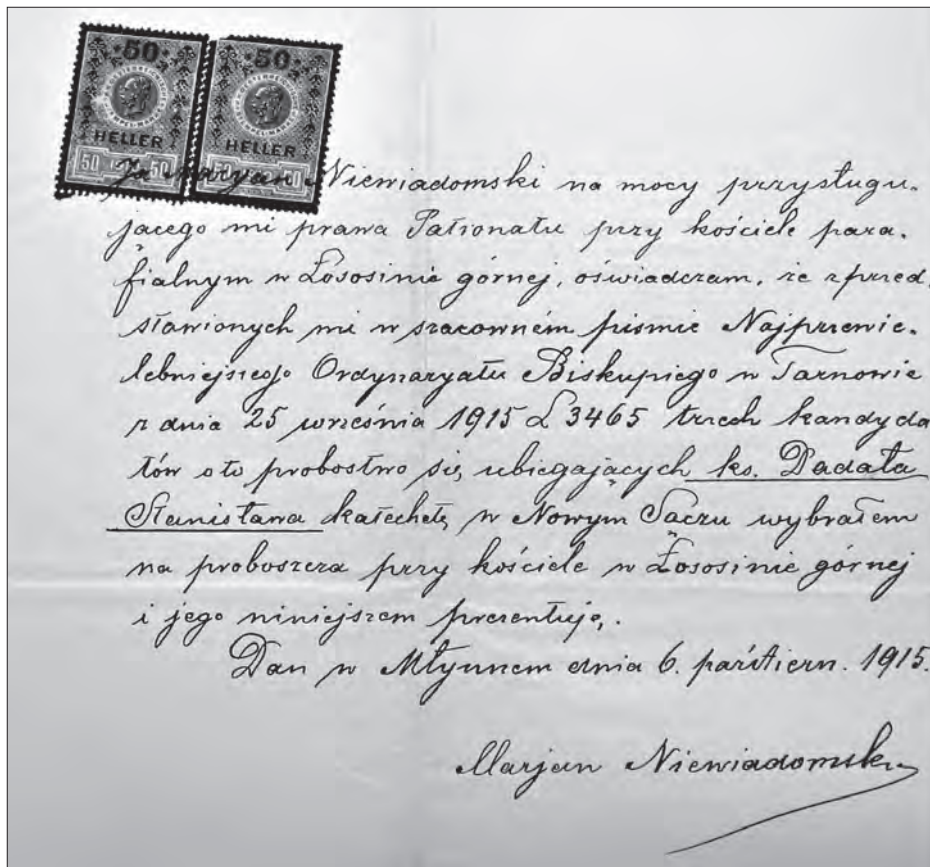 50 50
HELLER HELLER
50 50 50 50
Ja Maryan Niewiadomski na mocy przysługu-
jącego mi prawa Patronatu przy kościele para-
fialnym w Łososinie górnej, oświadczam, że z przed-
stawionych mi w szacowném piśmie Najprzewie-
lebniejszego Ordynaryatu Biskupiego w Tarnowie
z dnia 25 września 1915 L 3465 trzech kandyda
tów o to probostwo się ubiegających ks. Dadała
Stanisława katechetę w Nowym Sączu wybrałem
na proboszcza przy kościele w Łososinie górnej
i jego niniejszem prezentuję.
Dan w Młynnem dnia 6. październ. 1915.
Marjan Niewiadomski